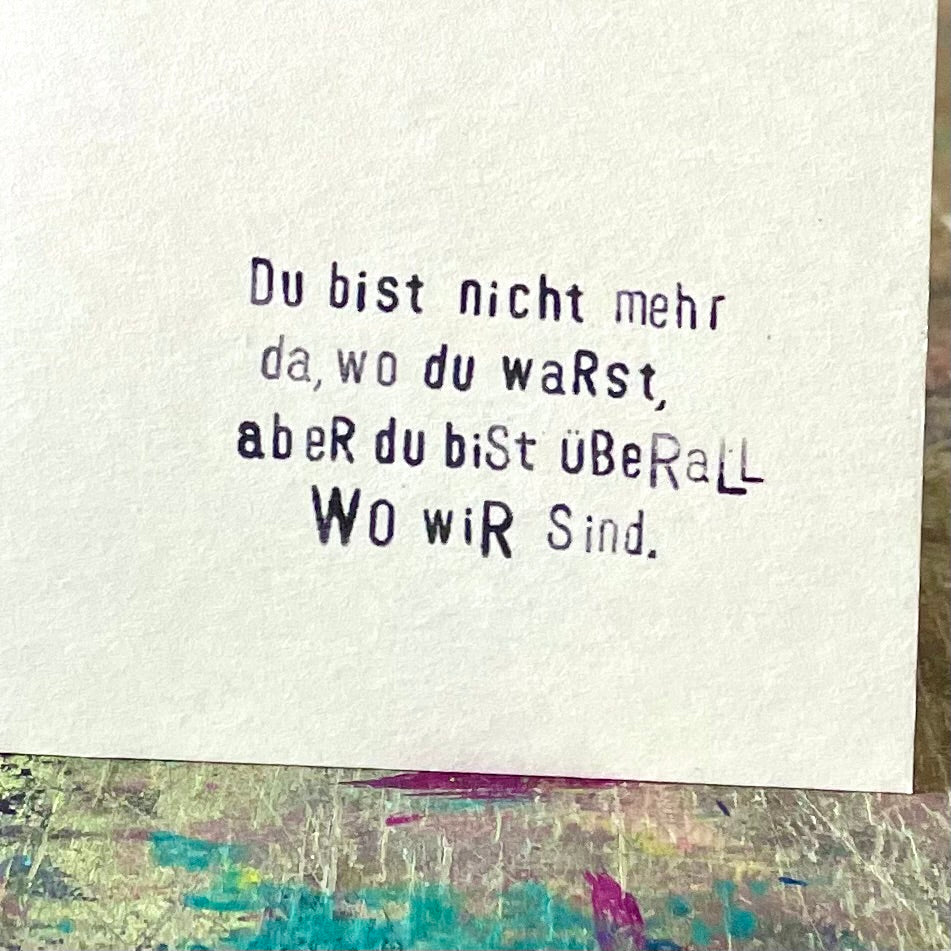 Du bist nicht mehr
da, wo du waRst,
abeR du biSt üBeRaLL
WO wiR Sind.